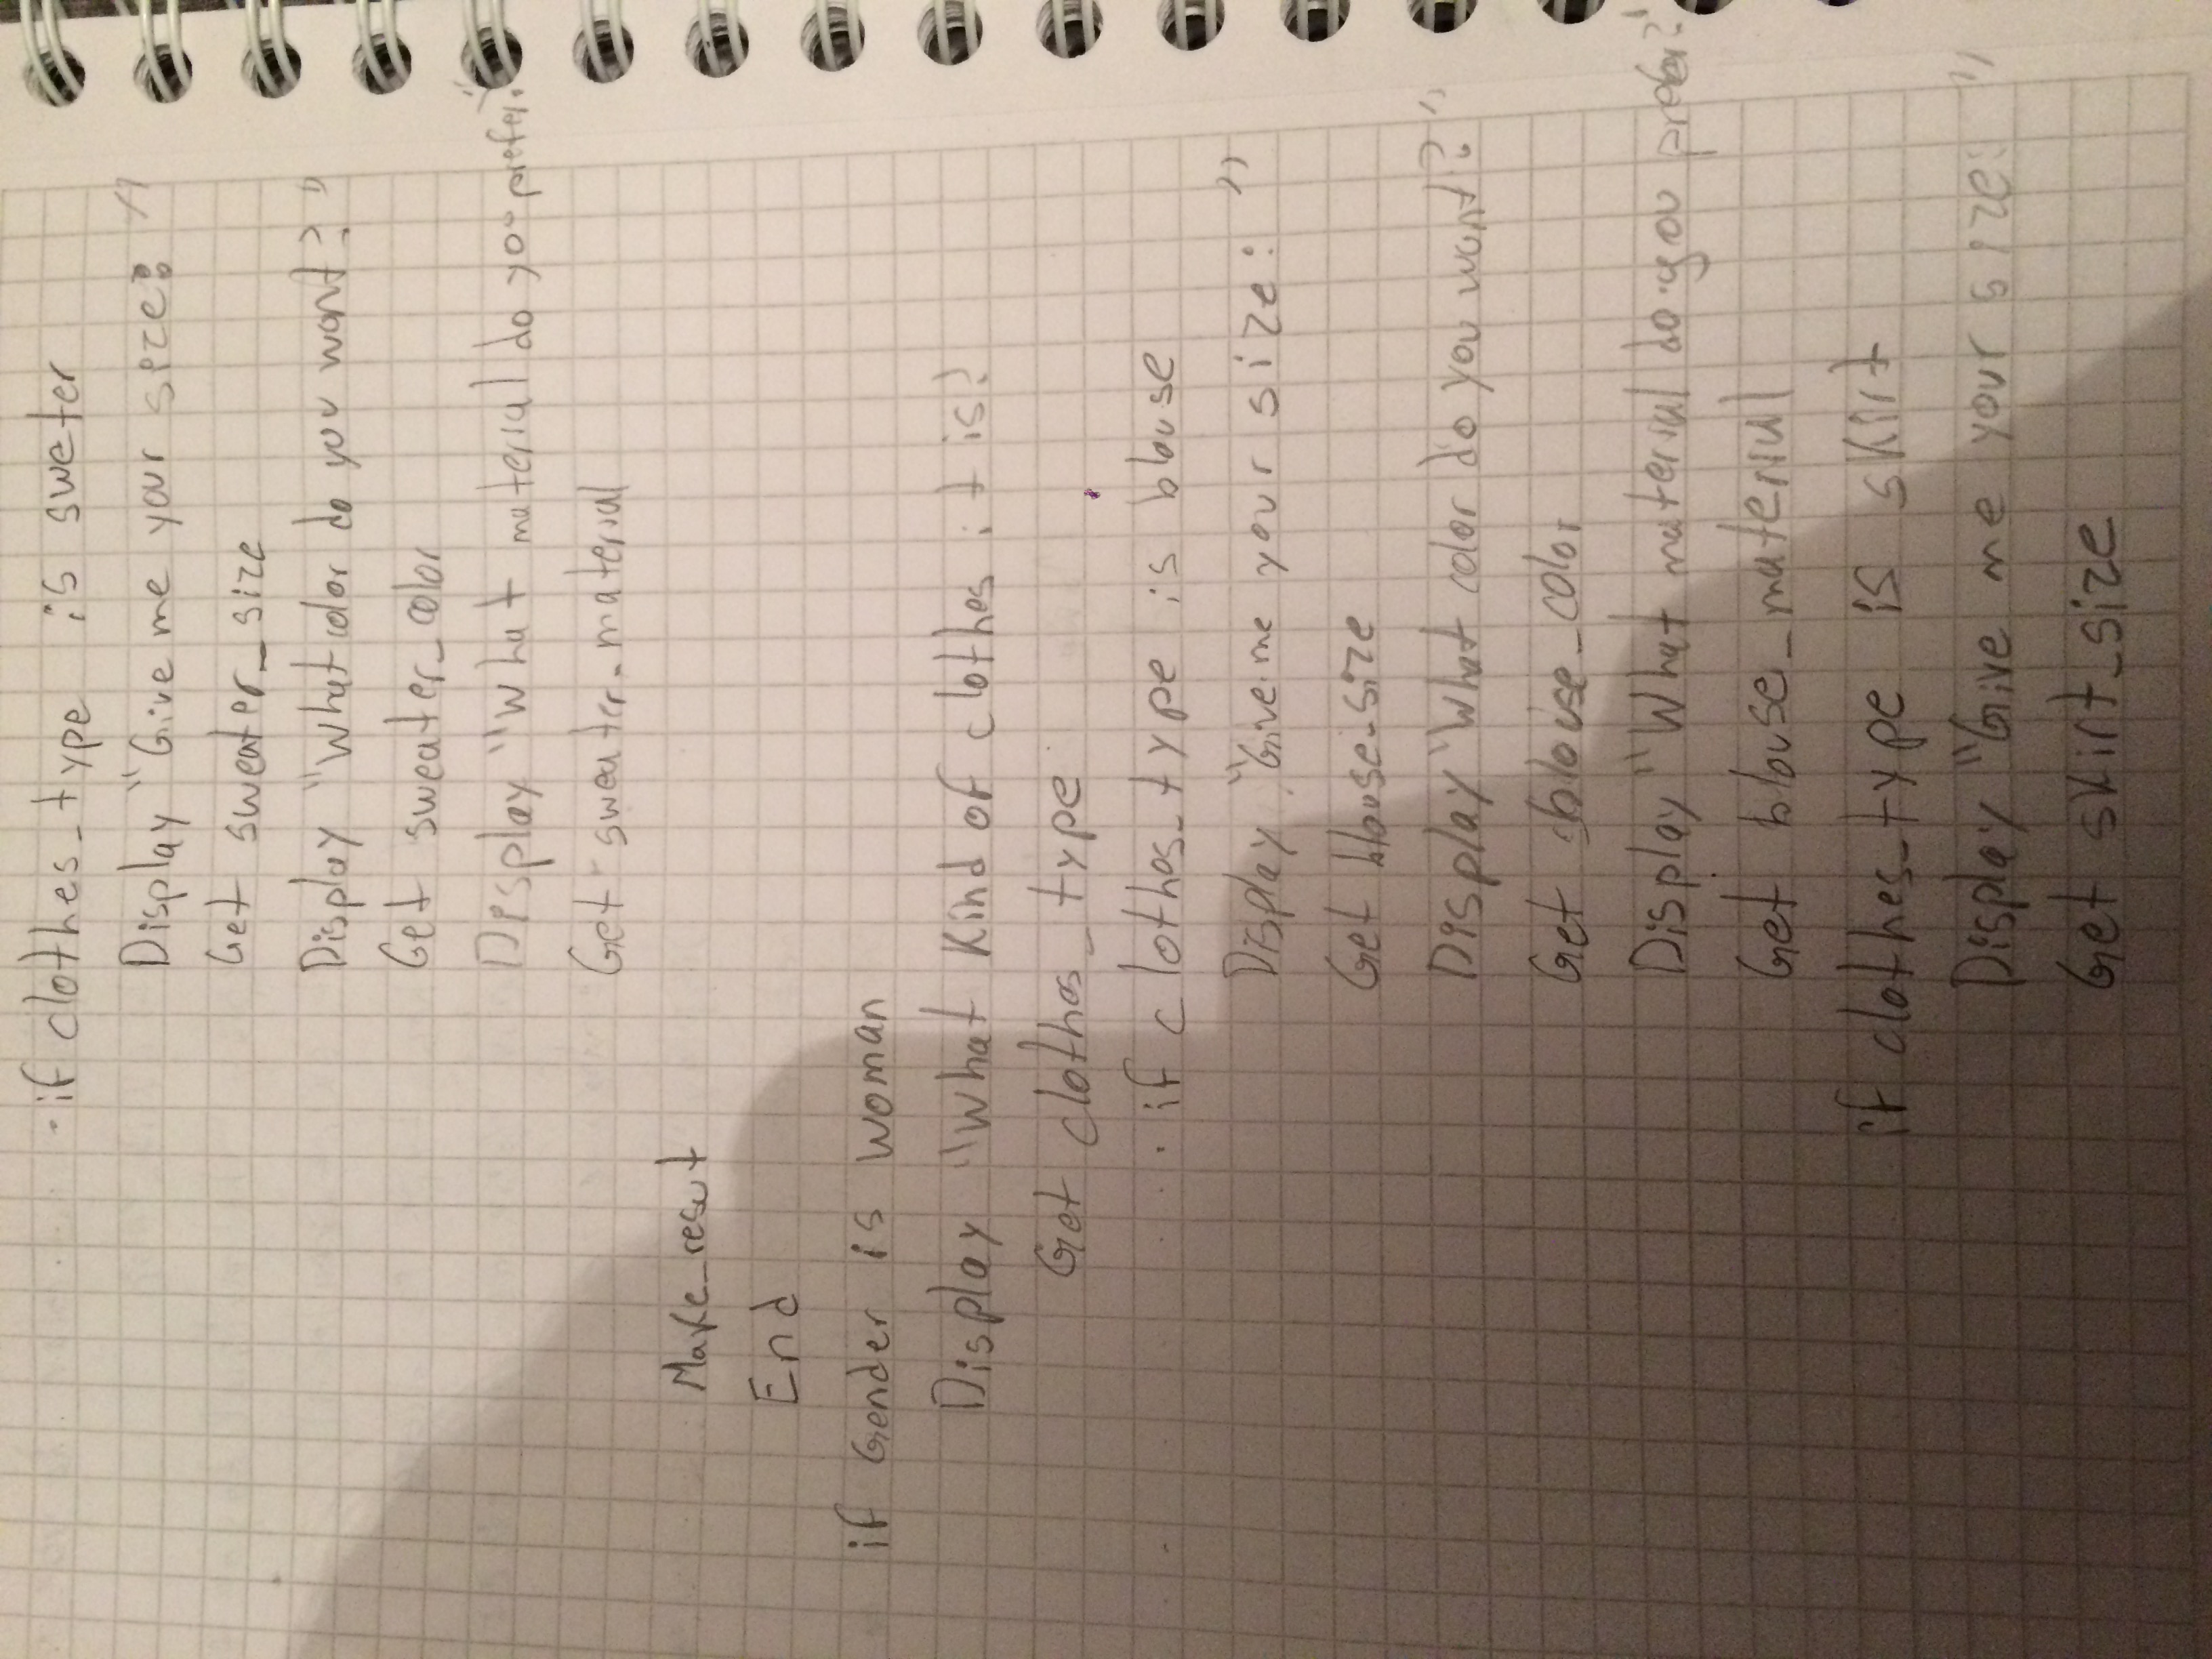 if clothes_type is sweter
Display "Give me your size: "
Get sweater_size
Display "What color do you want? "
Get sweater_color
Display "What material do you prefer? "
Get sweater_material
Make_result
End
if Gender is woman
Display "What Kind of clothes it is?
Get clothes_type
if clothes_type is blouse
Display "Give me your size: "
Get blouse_size
Display "What color do you want? "
Get blouse_color
Display "What material do you prefer? "
Get blouse_material
if clothes_type is skirt
Display "Give me your size: "
Get skirt_size